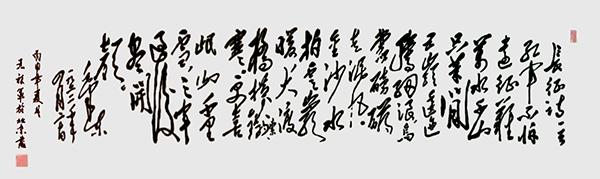 长征诗一首
红军不怕
远征难
万水千山
只等闲
五岭逶迤
腾细浪乌
蒙磅礴
走泥丸
金沙水
拍云崖
暖大渡
桥横铁索
寒更喜
岷山千里
雪三军
过后
尽开
颜
毛泽东
一九六二年
丙申年夏月